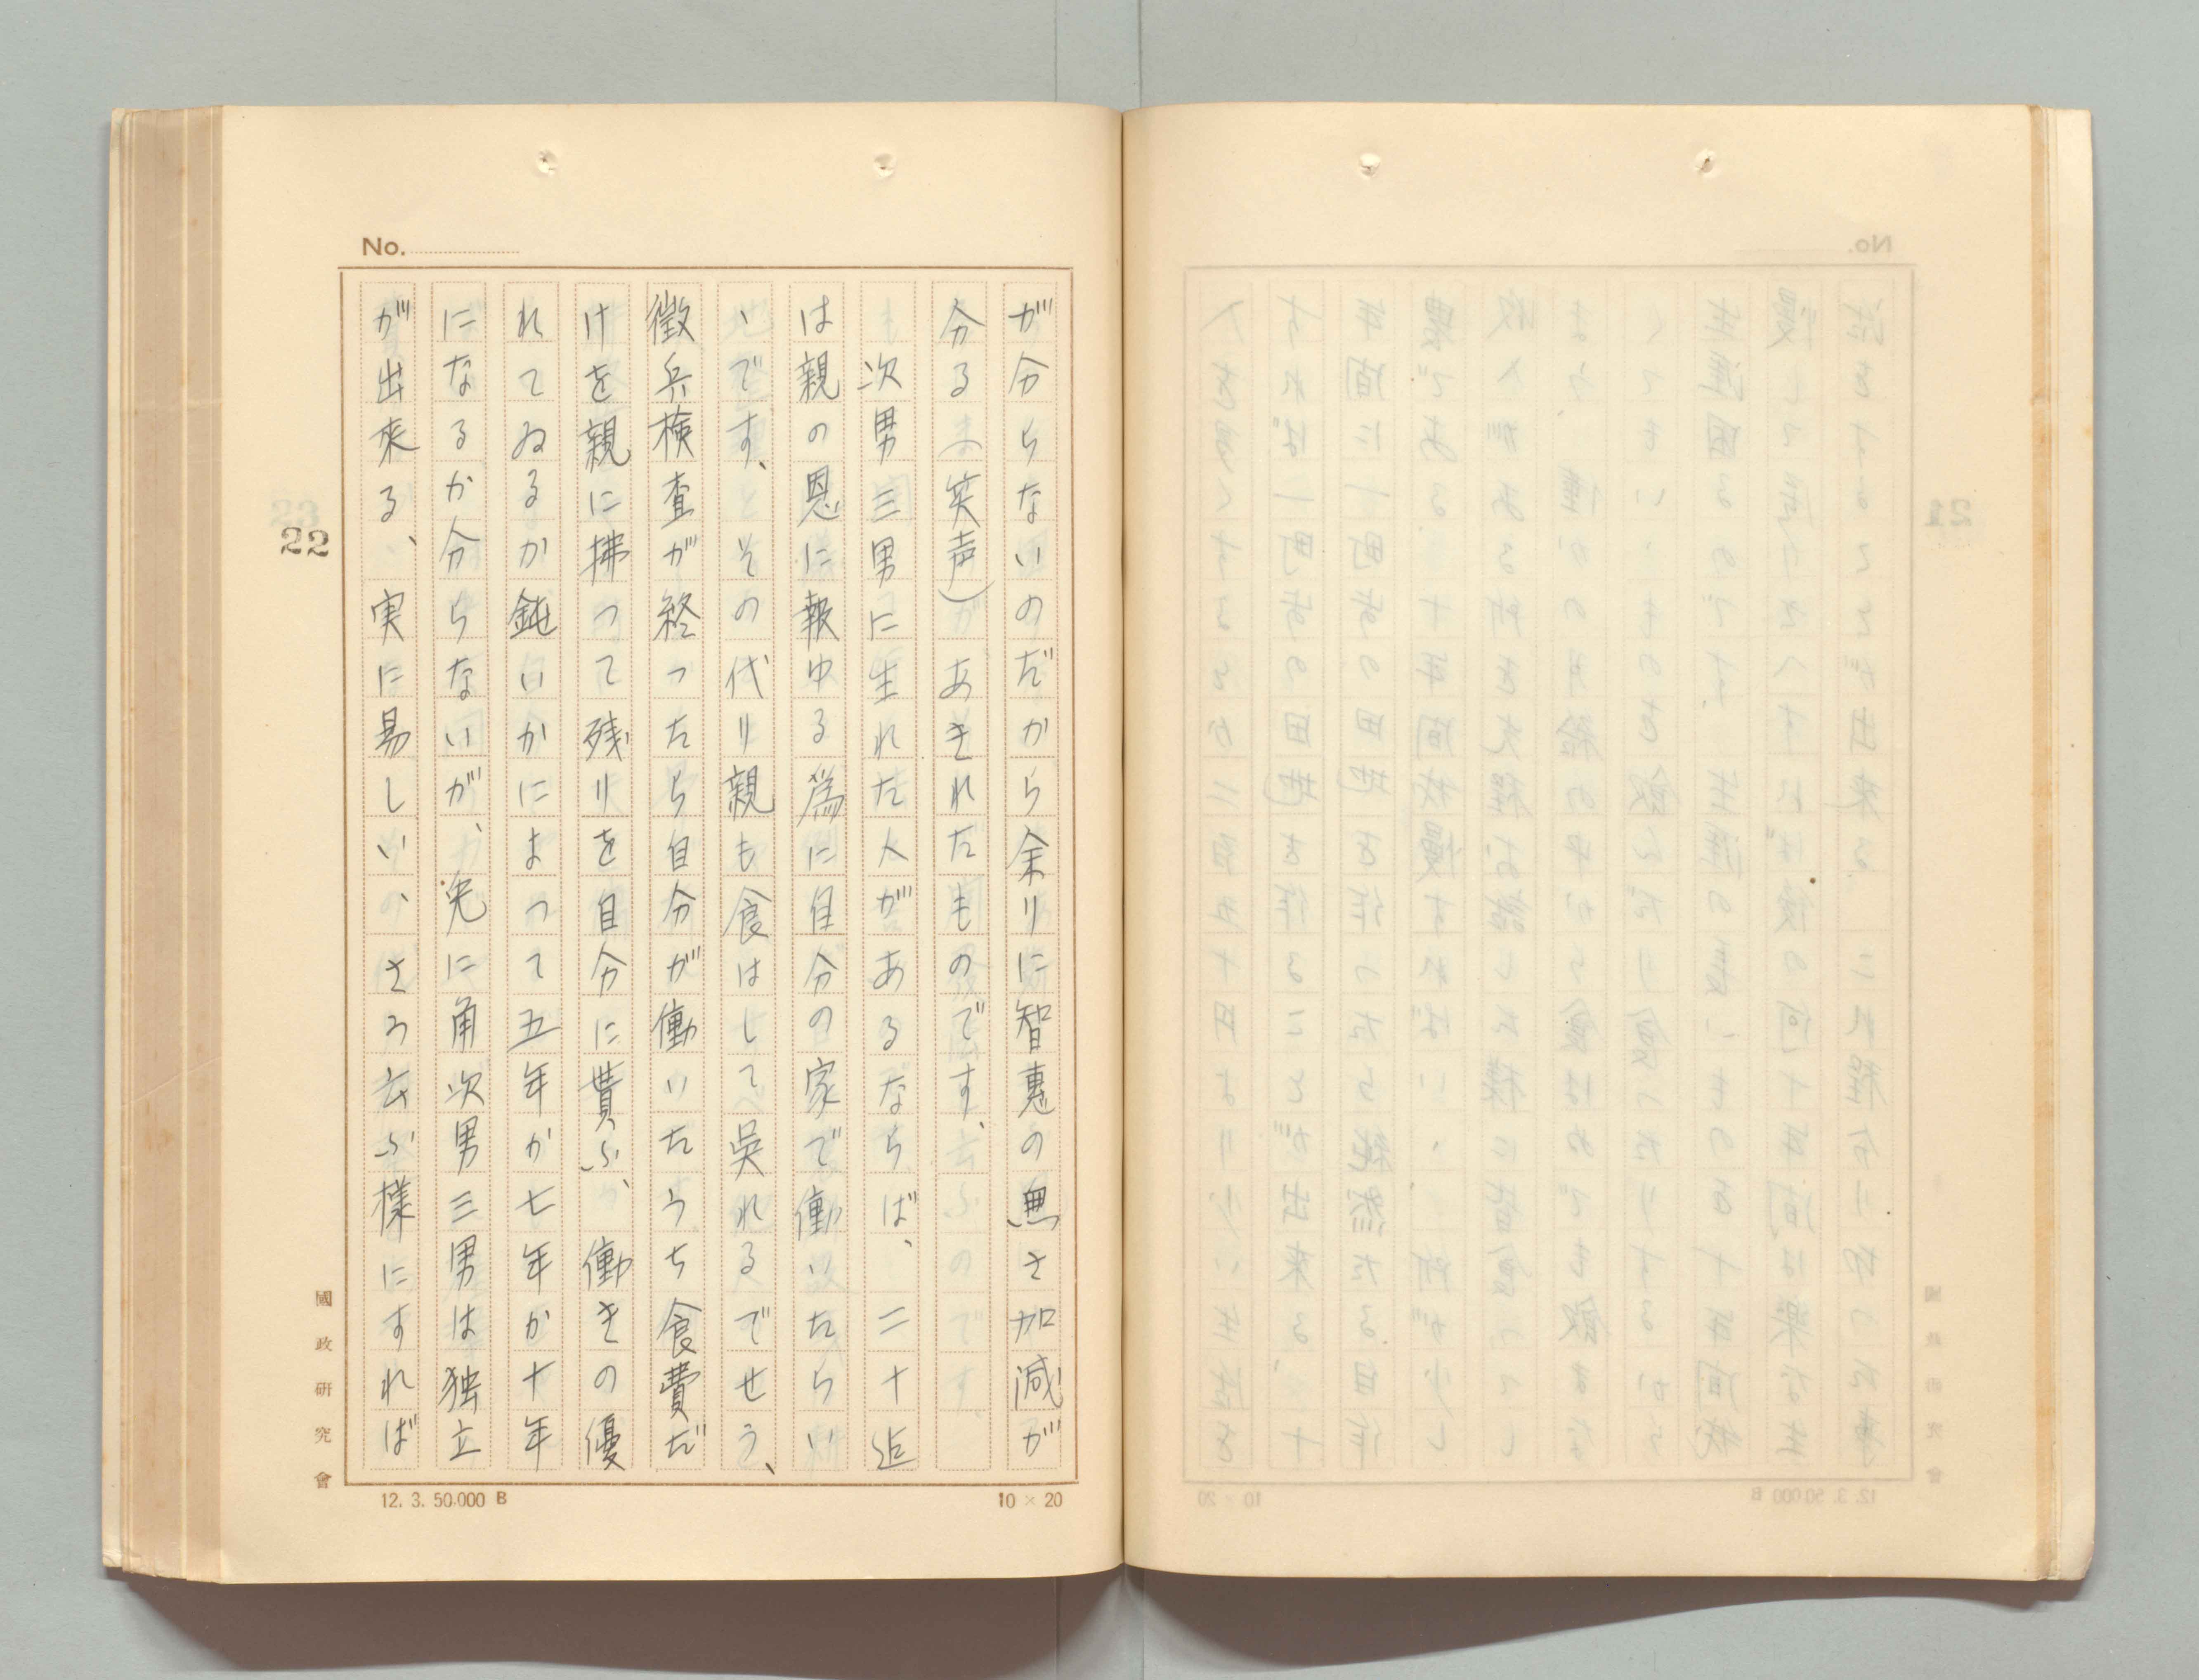 No.
が分らないのだから余りに智恵の無さ加減が
分る(笑声)あきれたものです、
次男三男に生れた人があるならば、二十迄
は親の恩に報ゆる為に自分の家で働いたらい
ゝです、その代り親も食はして呉れるでせう、
徴兵検査が終ったら自分が働いたうち食費だ
けを親に拂って残りを自分に貰ふ、働きの優
れてゐるか鈍いかによって五年か七年か十年
になるか分らないが、兎に角次男三男は独立
が出来る、実に易しい、さう云ふ様にすれば
22
國政研究會
12. 3. 50.000 B
10 × 20